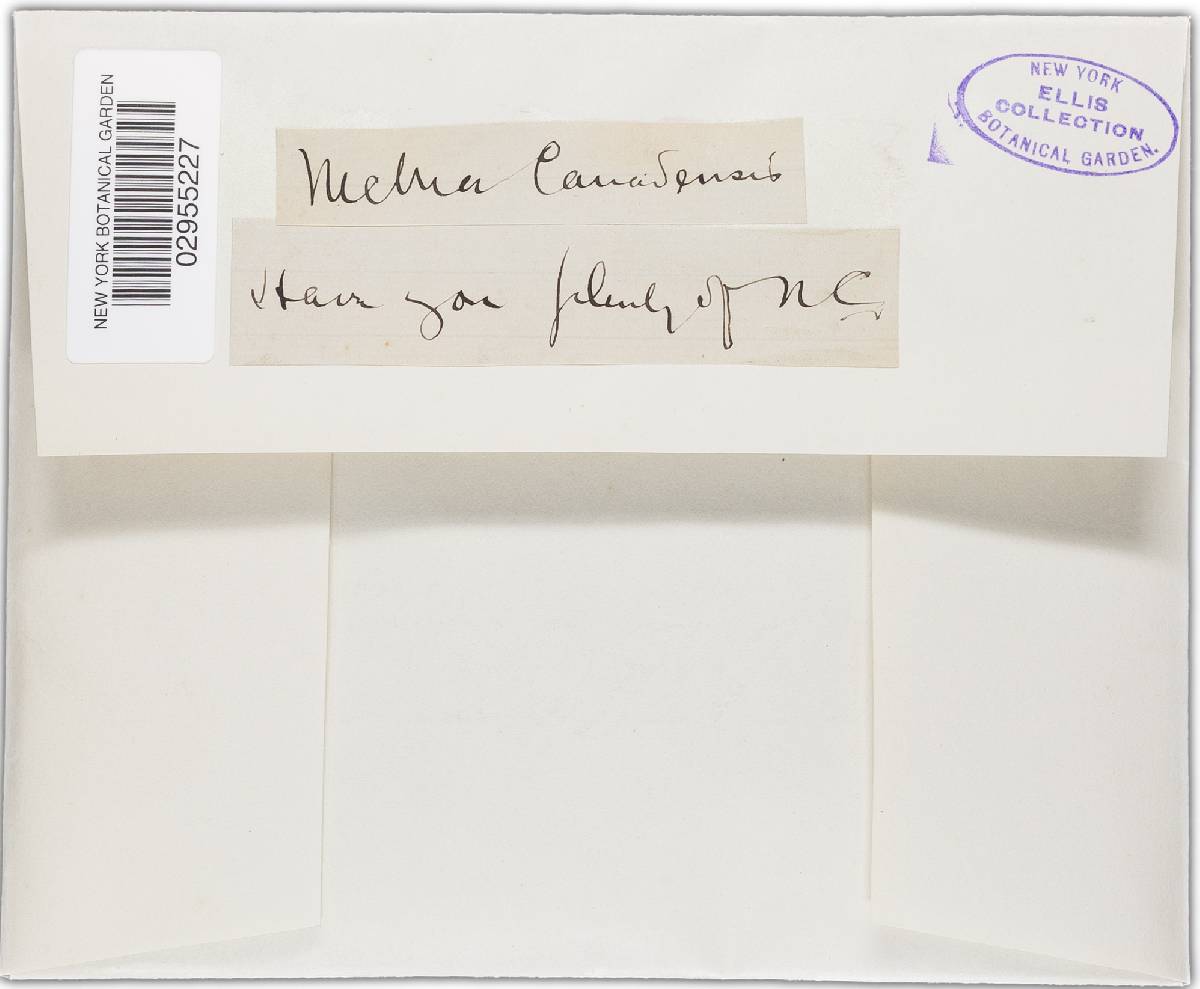 NEW YORK BOTANICAL GARDEN
02955227
NEW YORK
ELLIS
COLLECTION
BOTANICAL GARDEN.
Nectria Canadensis
Have you plenty of N C